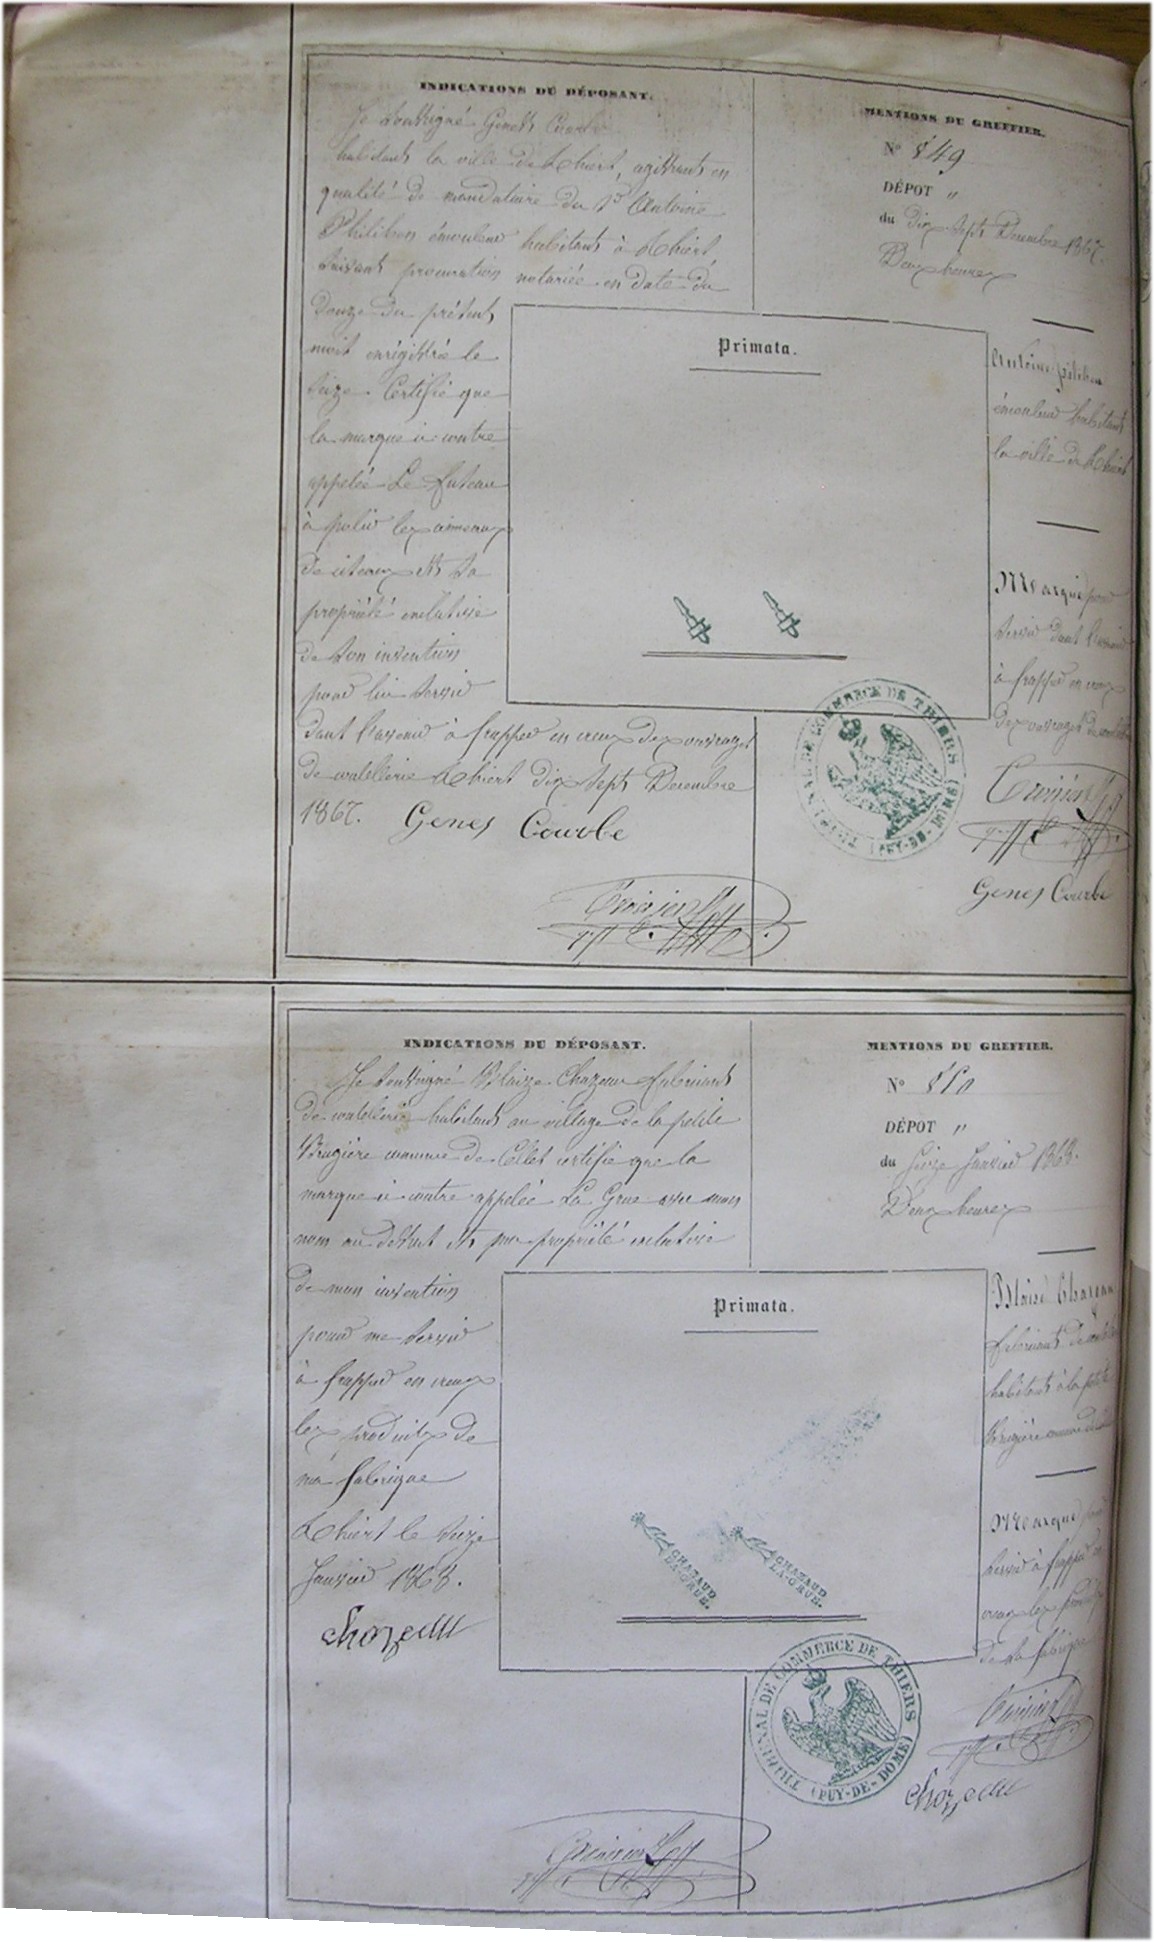 INDICATIONS DU DÉPOSANT.
Je soussigné Genest Courbe
habitant la ville de Thiers, agissant en
qualité de mandataire du Sr Antoine
Philibon émouleur habitant à Thiers,
suivant procuration notariée en date du
douze du présent
mois enrégistré le
seize. Certifie que
la marque ci contre
appelée Le
à polir les anneaux
de ciseaux est sa
propriété exclusive
de son invention
pour lui servir
dans l'avenir à frapper en creux des ouvrages
de coutellerie Thiers dix sept Décembre
1867. Genes Courbe
MENTIONS DU GREFFIER.
N° 849
DÉPOT "
du dix sept Décembre 1867.
Deux heures
Primata.
Antoine
émouleur habitant
la ville de Thiers
Marque pour
servir dans l'avenir
à frapper en creux
des ouvrages de
TRIBUNAL DE COMMERCE DE THIERS
(PUY-DE-DÔME)
Genes Courbe
INDICATIONS DU DÉPOSANT.
Je soussigné Blaize Chazeau fabricant
de coutellerie habitant au village de la petite
Brugière commune de Cellet certifie que la
marque ci contre appelée La Grue avec mon
nom au dessus est ma propriété exclusive
de mon invention
pour me servir
à frapper en creux
les produits de
ma fabrique
Thiers le seize
Janvier 1868.
chozeau
MENTIONS DU GREFFIER.
N° 850
DÉPOT "
du seize Janvier 1868.
Deux heures
Primata.
CHAZAUD
LA-GRUE.
CHAZAUD
LA-GRUE.
Blaise Chazeau
fabricant de
habitant à la petite
Brugière commune de
Marque pour
servir à frapper en
creux les produits
de sa fabrique
TRIBUNAL DE COMMERCE DE THIERS
(PUY-DE-DÔME)
chozeau